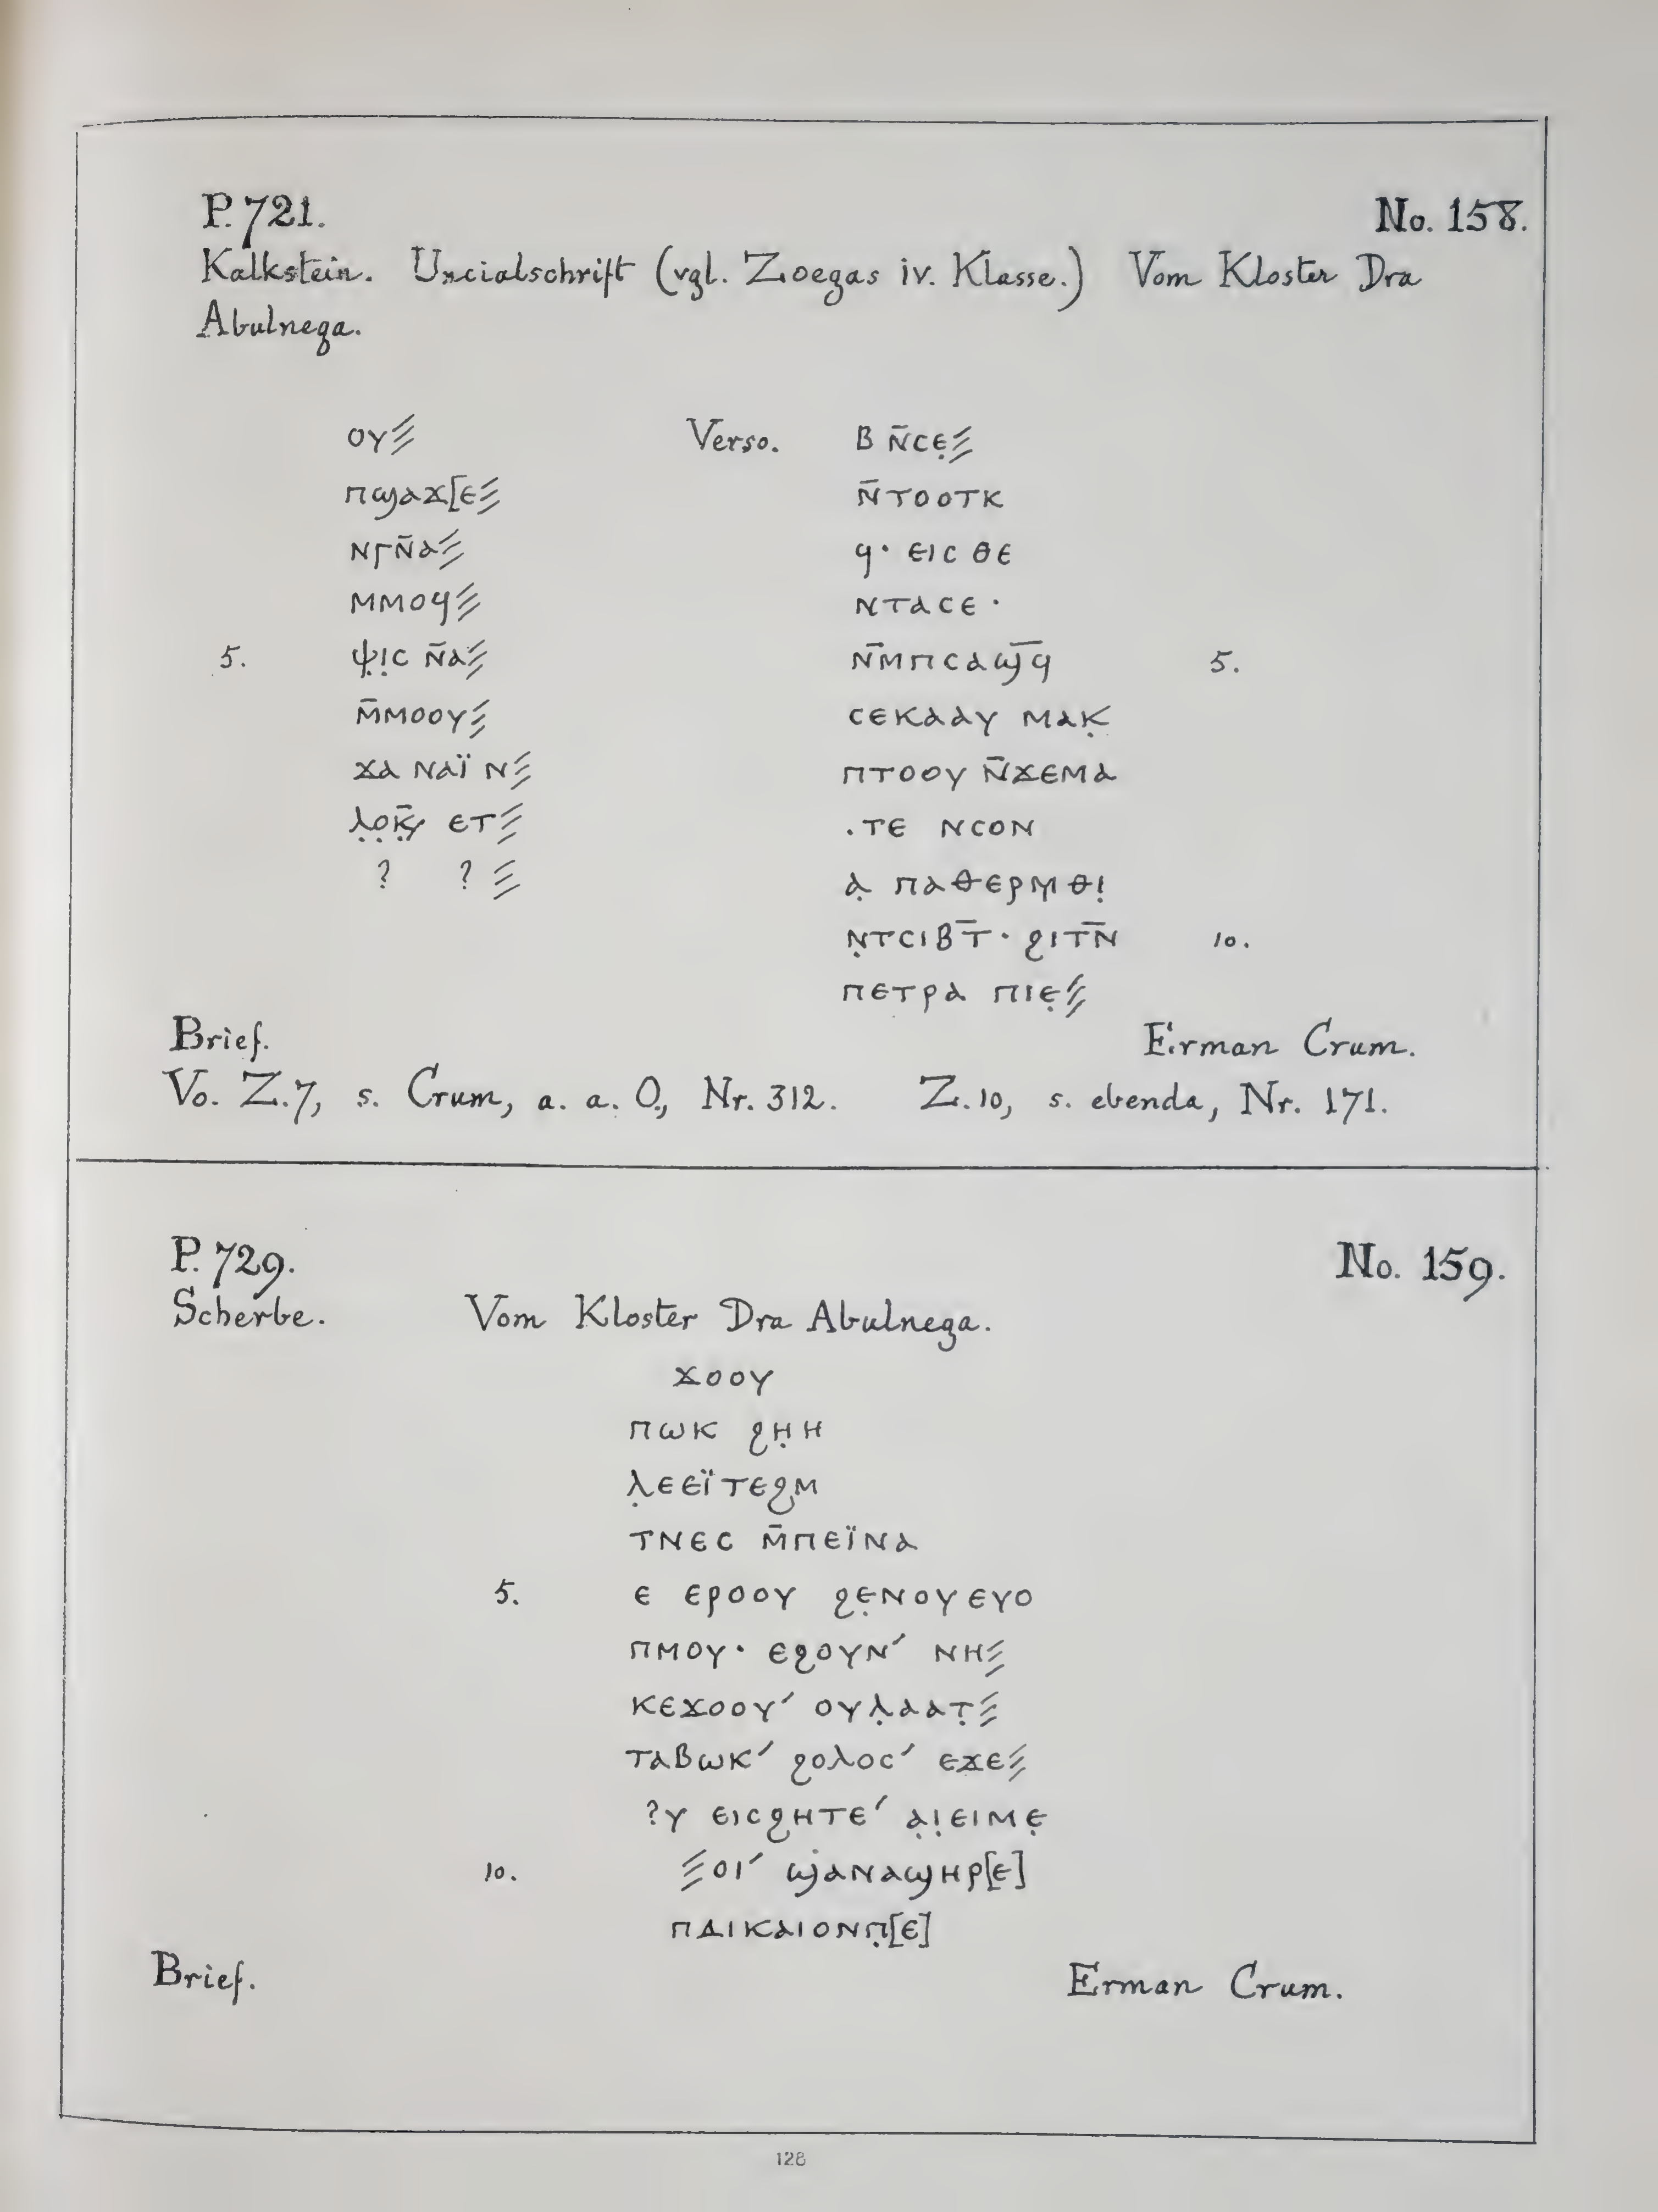 P. 721. No. 158.
Kalkstein. Uncialschrift (vgl. Zoegas iv. Klasse.) Vom Kloster Dra
Abulnega.
ⲟⲩ⫻
ⲡϣⲁϫ[ⲉ⫻
ⲛⲅⲛ̄ⲁ⫻
ⲙⲙⲟϥ⫻
5. ⲯ̣ⲓ̣ⲥ ⲛ̄ⲁ⫻
ⲙ̄ⲙⲟⲟⲩ⫻
ϫⲁ ⲛⲁⲓ̈ ⲛ⫻
ⲗ̣ⲟ̣ⲕ̣̄ ⲉⲧ⫻
? ? ⫻
Verso. ⲃ ⲛ̄ⲥⲉ̣⫻
ⲛ̄ⲧⲟⲟⲧⲕ
ϥ· ⲉⲓⲥ ⲑⲉ
ⲛⲧⲁⲥⲉ ·
ⲛ̄ⲙⲡⲥⲁϣ̄ϥ̄ 5.
ⲥⲉⲕⲁⲁⲩ ⲙⲁⲕ̣
ⲡⲧⲟⲟⲩ ⲛ̄ϫⲉⲙⲁ
.ⲧⲉ ⲛⲥⲟⲛ
ⲁ̣ ⲡⲁⲑⲉⲣⲙⲑⲓ̣
ⲛ̣ⲧⲥⲓⲃⲧ̄ · ϩⲓⲧⲛ̄ 10.
ⲡⲉⲧⲣⲁ ⲡⲓⲉ̣⫻
Brief. Erman Crum.
Vo. Z.7, s. Crum, a. a. O., Nr. 312. Z.10, s. ebenda, Nr. 171.
P. 729. No. 159.
Scherbe. Vom Kloster Dra Abulnega.
ϫⲟⲟⲩ
ⲡⲱⲕ ϩⲏ̣ⲏ
ⲗ̣ⲉⲉⲓ̈ⲧⲉϩⲙ
ⲧⲛⲉⲥ ⲙ̄ⲡⲉⲓ̈ⲛⲁ
5. ⲉ ⲉⲣⲟⲟⲩ ϩⲉ̣ⲛⲟⲩⲉⲩⲟ
ⲡⲙⲟⲩ· ⲉϩⲟⲩⲛ′ ⲛⲏ⫻
ⲕⲉϫⲟⲟⲩ′ ⲟⲩⲗ̣ⲁⲁⲧ̣⫻
ⲧⲁⲃⲱⲕ′ ϩⲟⲗⲟⲥ′ ⲉϫⲉ⫻
?ⲩ ⲉⲓⲥϩⲏⲧⲉ′ ⲁ̣ⲓ̣ⲉⲓⲙⲉ̣
10. ⫻ⲟⲓ′ ϣⲁⲛⲁϣⲏⲣ[ⲉ]
ⲡⲇⲓⲕⲁⲓⲟⲛⲡ̣[ⲉ]
Brief. Erman Crum.
128